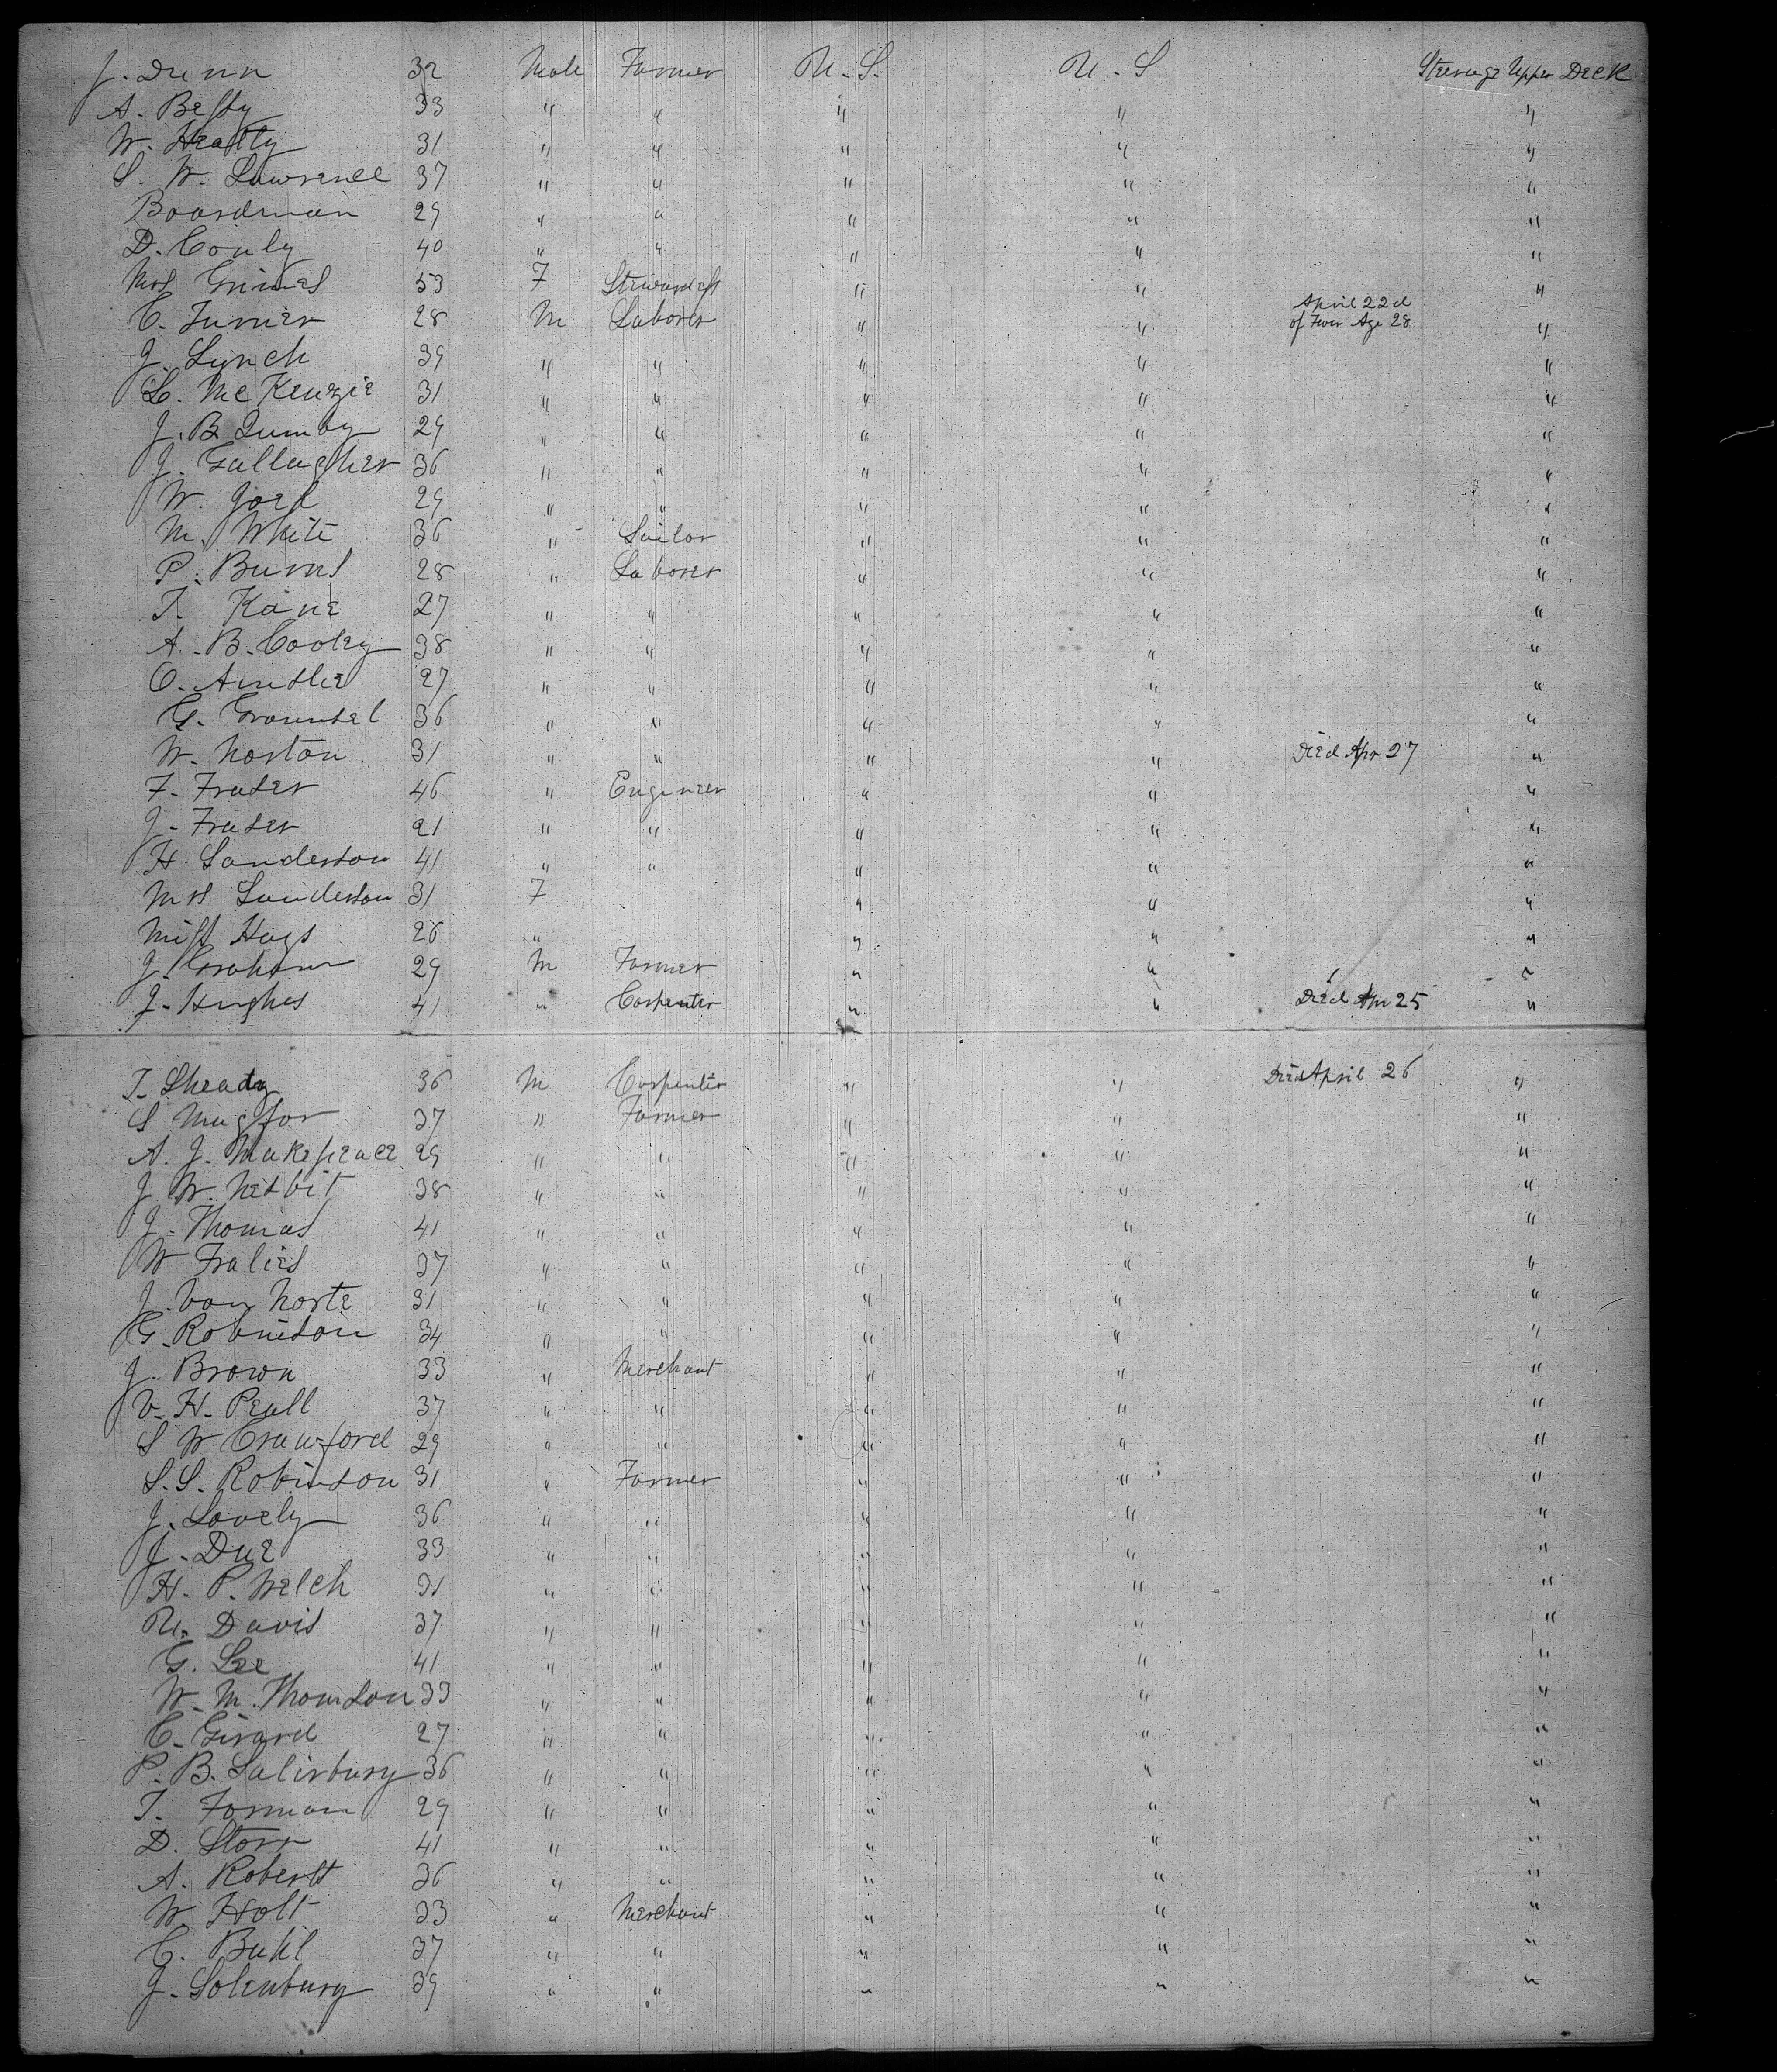 J. Dunn 32 Male Farmer U. S. U. S Steerage Upper Deck
A. Besty 33 " " " " "
W. Heatty 31 " " " " "
S. W. Lawrence 37 " " " " "
Boardman 29 " " " " "
D. Conly 40 " " " " "
Mrs Grimes 53 F Stewardess " " "
C. Turner 28 M Laborer " " April 22d of Fever Age 28 "
J. Lynch 39 " " " " "
L. McKenzie 31 " " " " "
J. B Qumby 29 " " " " "
J. Gallagher 36 " " " " "
W. Joel 29 " " " " "
M. White 36 " Sailor " " "
P. Burns 28 " Laborer " " "
T. Kane 27 " " " " "
A. B. Cooley 38 " " " " "
C. Amslie 27 " " " " "
G. Grounsel 36 " " " " "
W. Norton 31 " " " " Died Apr 27 "
F. Fraser 46 " Engineer " " "
J. Fraser 21 " " " " "
H. Sanderson 41 " " " " "
Mrs Sanderson 31 F " " "
Miss Hags 26 " " " "
J. Graham 29 M Farmer " " "
J. Hughes 41 " Carpenter " " Died Apr 25 "
T. Sheady 36 M Carpenter " " Died April 26 "
S Mugfor 37 " Farmer " " "
A. J. Makepeace 29 " " " " "
J W. Nesbit 38 " " " " "
J. Thomas 41 " " " " "
W Fralies 37 " " " " "
J. Van Norte 31 " " " " "
G. Robinson 34 " " " " "
J. Brown 33 " Merchant " " "
V. H. Peall 37 " " " " "
S W Crawford 29 " " " " "
S. S. Robinson 31 " Farmer " " "
J. Lovely 36 " " " " "
J. Due 33 " " " " "
H. P. Welch 31 " " " " "
U. Davis 37 " " " " "
G. Lee 41 " " " " "
W. M. Thomson 33 " " " " "
C. Girard 27 " " " " "
P. B. Salisbury 36 " " " " "
T. Forman 29 " " " " "
D. Storr 41 " " " " "
A. Roberts 36 " " " " "
W. Holt 33 " Merchant " " "
C. Buhl 37 " " " " "
J. Solenburg 39 " " " " "